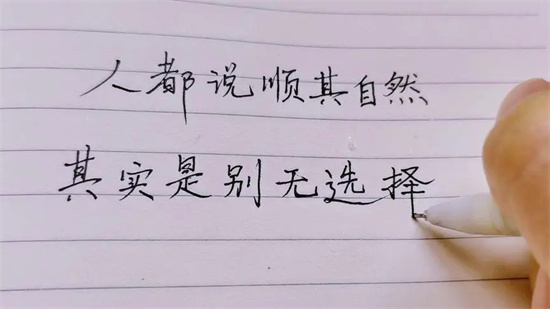 人都说顺其自然
其实是别无选择